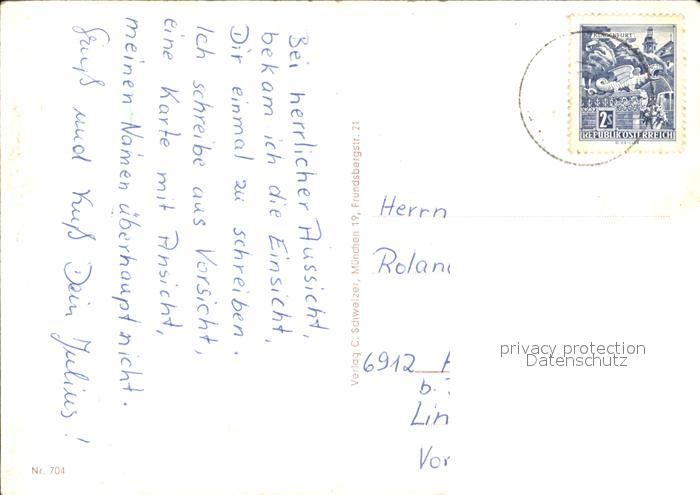 Bei herrlicher Aussicht,
bekam ich die Einsicht,
Dir einmal zu schreiben.
Ich schreibe aus Vorsicht,
eine Karte mit Ansicht,
meinen Namen überhaupt nicht.
Gruß und Kuß Dein Julius!
Nr. 704
Verlag C. Schweizer, München 19, Frundsbergstr. 21
KLAGENFURT
2S
REPUBLIK ÖSTERREICH
Herrn
Rolan
6912
b.
Lin
Vor
privacy protection
Datenschutz